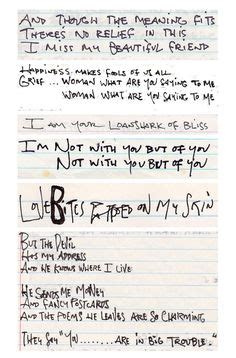 AND THOUGH THE MEANING FITS
THERES NO RELIEF IN THIS
I MISS MY BEAUTIFUL FRIEND
HAPPINESS MAKES FOOLS OF US ALL
GRIEF... WOMAN WHAT ARE YOU SAYING TO ME
WOMAN WHAT ARE YOU SAYING TO ME
I AM YOUR LOANSHARK OF BLISS
I'M NOT WITH YOU BUT OF YOU
NOT WITH YOU BUT OF YOU
LOVE BITES ON MY SKIN
BUT THE DEVIL
HAS MY ADDRESS
AND HE KNOWS WHERE I LIVE
HE SENDS ME MONEY
AND FANCY POSTCARDS
AND THE POEMS HE LEAVES ARE SO CHARMING
THEY SAY "YOU........ARE IN BIG TROUBLE."